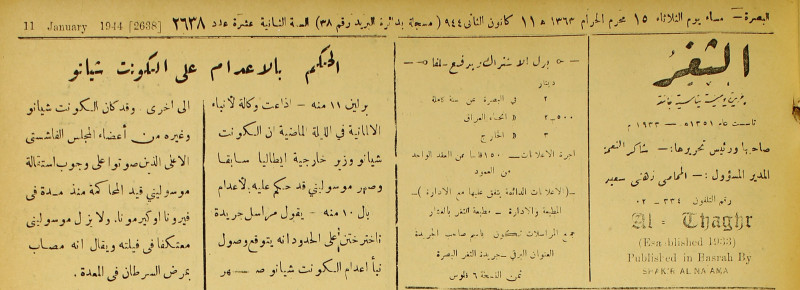 البصرة — مساء يوم الثلاثاء ١٥ محرم الحرام ١٣٦٣ هـ ١١ كانون الثاني ٩٤٤ ( مسجلة بدائرة البريد رقم ٣٨) السنة الثانية عشرة عدد ٢٦٣٨
11 January 1944 [2638]
الثغر
جريدة يومية سياسية جامعة
تأسست عام ١٣٥١هـ — ١٩٣٣ م
صاحبها ورئيس تحريرها:— شاكر النعمة
المدير المسؤول:— المحامي زهني سعيد
رقم التلفون ٣٣٤ — ٠٢
Al - Thaghr
(Esablished 1933)
Published in Basrah By
SHAKIR AL NAAMA
بدل الاشتراك ويدفع سلفا
دينار
٢ في البصرة عن سنة كاملة
٢—٥٠٠ » انحاء العراق
٣ » الخارج
اجرة الاعلانات — ١٥٠ فلسا ممن العقد الواحد
من العمود
—(الاعلانات الدائمة يتفق عليها مع الادارة )—
المطبعة والادارة — مطبعة الثغر بالعشار
جميع المراسلات تكون باسم صاحب الجريدة
العنوان البرقي —جريدة الثغر البصرة
ثمن النسخة ٦ فلوس
الحكم بالاعدام على الكونت شيانو
برلين ١١ منه — اذاعت وكالة لأنباء
الالمانية في الليلة الماضية ان الكونت
شيانو وزير خارجية ايطاليا سابقا
وصهر موسوليني قد حكم عليه بلأعدام
بال ١٠ منه — يقول مراسل جريدة
على الحدود انه يتوقع وصول
نبأ اعدام الكونت شيانو صـ — هر
الى اخرى . وقد كان الكونت شيانو
وغيره من أعضاء المجلس الفاشستي
الاعلى الذين صوتوا على وجوب استقالة
موسوليني قيد المحاكمة منذ مدة في
فيرونا او كيرمونا. ولا يزل موسوليني
معتكفا في فيلته ويقال انه مصاب
بمرض السرطان في المعدة .